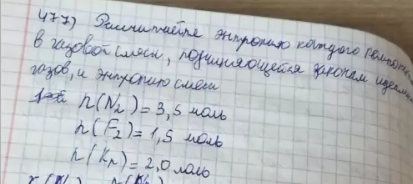 477) Рассчитайте энтропию каждого компонен
в газовой смеси, подчиняющейся законам идеальн
газов, и энтропию смеси
n(N₂) = 3,5 моль
n(F₂) = 1,5 моль
n(Kr) = 2,0 моль